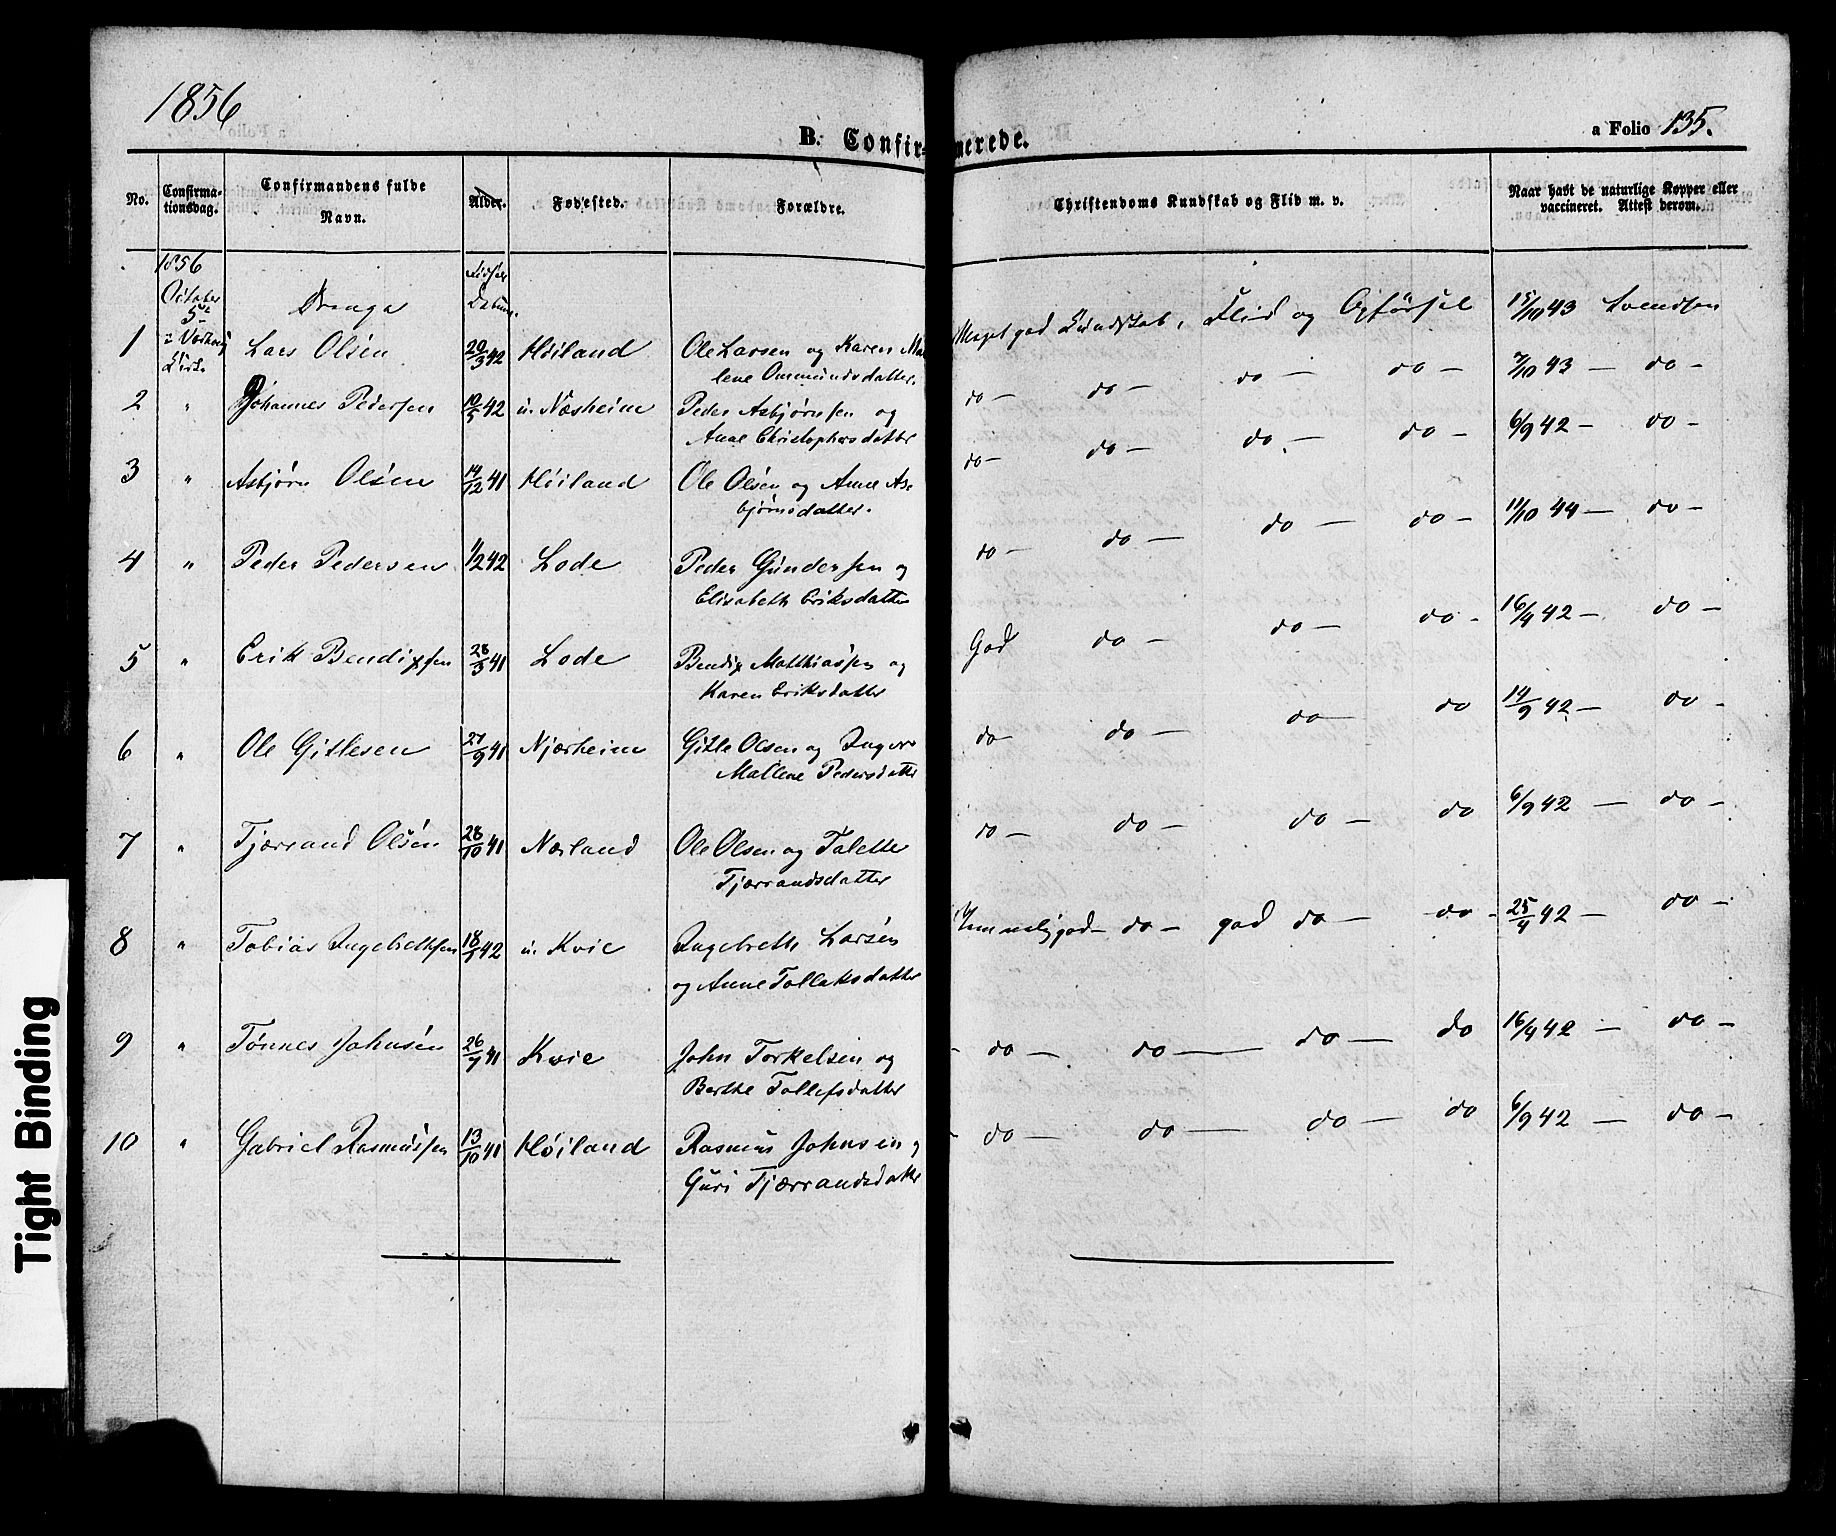 1856
B. Confirmerede.
a Folio 135.
No.
Confirmationsdag.
Confirmandens fulde Navn.
Alder.
Fødested.
Forældre.
Christendoms Kundskab og Flid m. v.
Naar havt de naturlige Kopper eller vaccineret. Attest derom.
1856
October
5te
i
Kirke
Drenge
1 Lars Olsen 20/3 42 Høiland Ole Larsen og Karen Malene Ommundsdatter. Meget god Kundskab, Flid og Opførsel 15/10 43 Svendsen
2 " Johannes Pedersen 10/5 42 u. Næsheim Peder Asbjørnsen og Anne Christophersdatter do — do — do — do — 7/10 43 — do —
3 " Asbjørn Olsen 14/12 41 Høiland Ole Olsen og Anne Asbjørnsdatter. do — do — do — do — 6/9 42 — do —
4 " Peder Pedersen 1/2 42 Lode Peder Gundersen og Elisabeth Eriksdatter do — do — do — do — 11/10 44 — do —
5 " Erik Bendixsen 28/3 41 Lode Bendix Matthiassen og Karen Eriksdatter God do — do — do - 16/4 42 — do —
6 " Ole Gitlesen 27/9 41 Njærheim Gitle Olsen og Inger Mallene Pedersdatter do — do — do — do 14/9 42 — do -
7 " Tjærrand Olsen 28/10 41 Nærland Ole Olsen og Talette Tjærrandsdatter do — do — do — do 6/9 42 — do —
8 " Tobias Ingebrethsen 18/5 42 u. Kvie Ingebreth Larsen og Anne Tollaksdatter Temmelig god — do — god do — do - 25/4 42 — do —
9 " Tønnes Johnsen 26/7 41 Kvie John Torkelsen og Berthe Tollefsdatter - do — do — do — do 16/4 42 — do —
10 " Gabriel Rasmussen 13/10 41 Høiland Rasmus Johnsen og Guri Tjærrandsdatter - do — do — do — do 6/9 42 — do —
Tight Binding